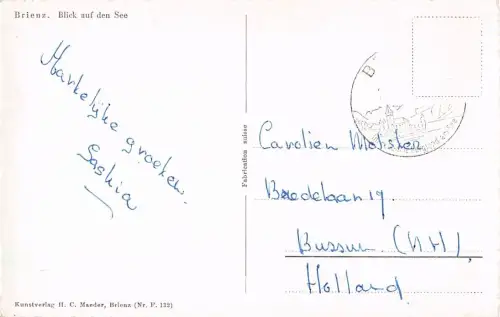 Brienz. Blick auf den See
Hartelijke groeten.
Saskia
Fabrication suisse
Carolien
Bredelaan 19.
Bussum (NH),
Holland
Kunstverlag H. C. Maeder, Brienz (Nr. F. 132)